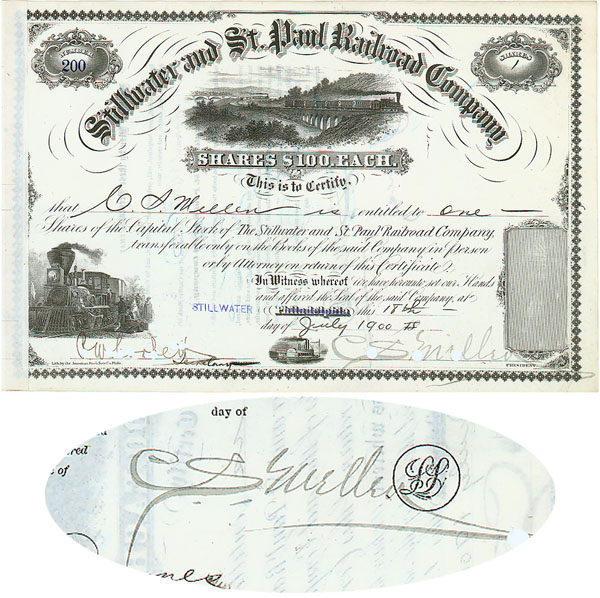 NUMBER
200
SHARES
1
Stillwater and St. Paul Railroad Company,
SHARES $100. EACH.
This is to Certify,
that C S Mellen is entitled to One
Shares of the Capital Stock of The Stillwater and St. Paul Railroad Company,
transferable only on the Books of the said Company in person
or by Attorney on return of this Certificate.
In Witness whereof we have hereunto set our Hands
and affixed the Seal of the said Company, at
STILLWATER Philadelphia this 18th
day of July 1900
C S Mellen
PRESIDENT
day of
of
C S Mellen